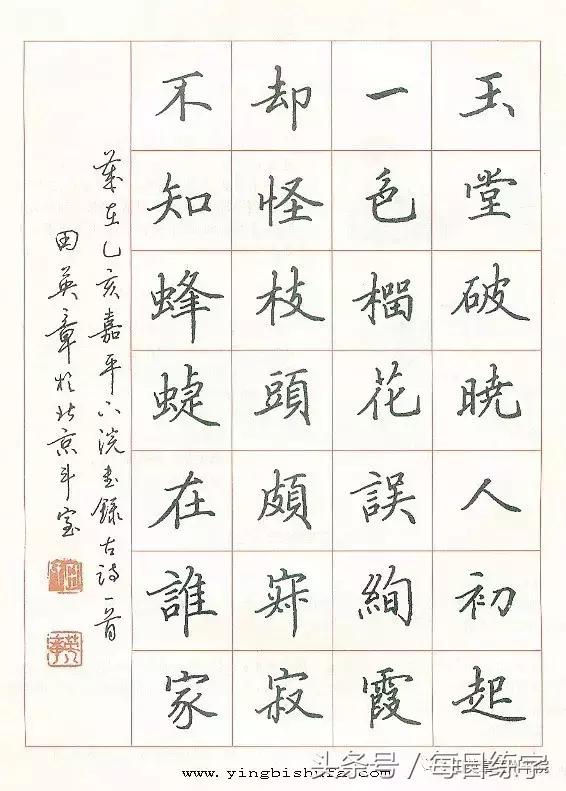 玉堂破暁人初起
一色榴花誤絢霞
却怪枝頭頗寂
不知蜂蝶在誰家
歲在乙亥嘉平下浣書錄古詩一首
田英章於北京斗室
头条号 / 每日练字
www.yingbishufa.com